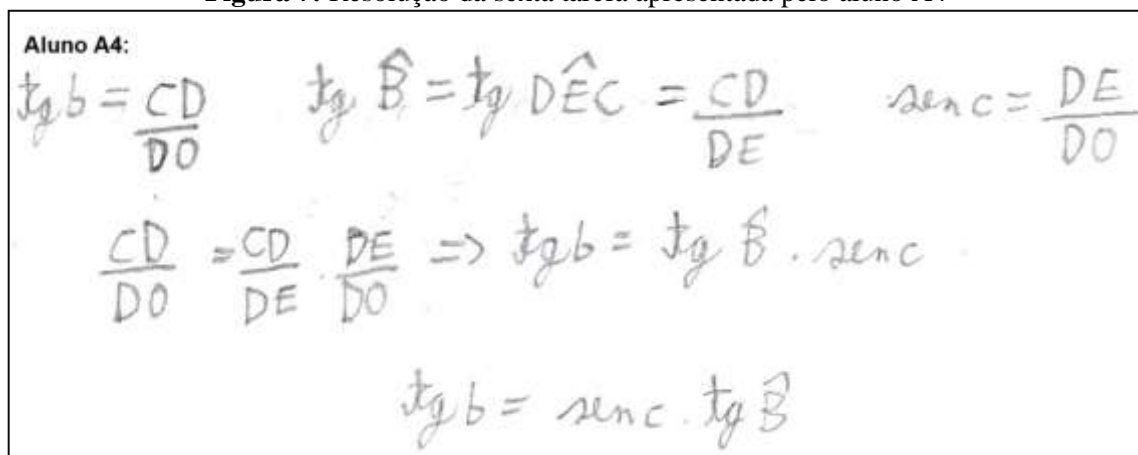 Figura 7: Resolução da sexta tarefa apresentada pelo aluno A4
Aluno A4:
tg b = CD/DO   tg B̂ = tg DÊC = CD/DE   sen c = DE/DO
CD/DO = CD/DE . DE/DO => tg b = tg B̂ . sen c
tg b = sen c . tg B̂